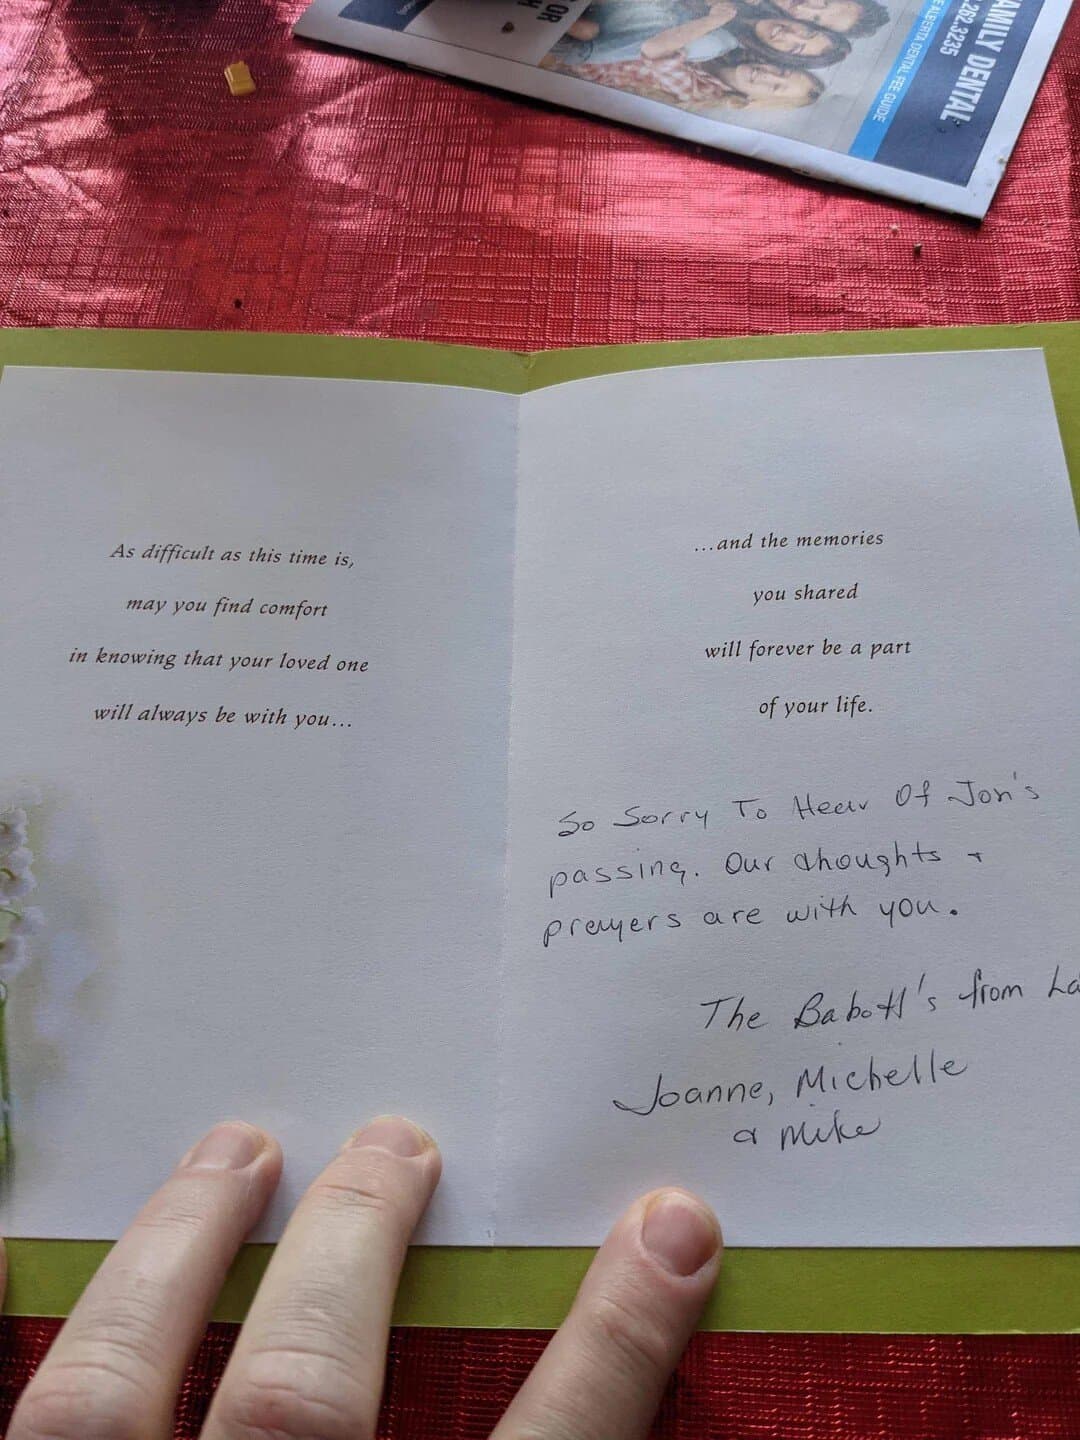 FAMILY DENTAL
262.3235
ALBERTA DENTAL FEE GUIDE
OR
As difficult as this time is,
may you find comfort
in knowing that your loved one
will always be with you...
...and the memories
you shared
will forever be a part
of your life.
So Sorry To Hear Of Jon's
passing. Our thoughts +
prayers are with you.
The Babott's from La
Joanne, Michelle
& Mike